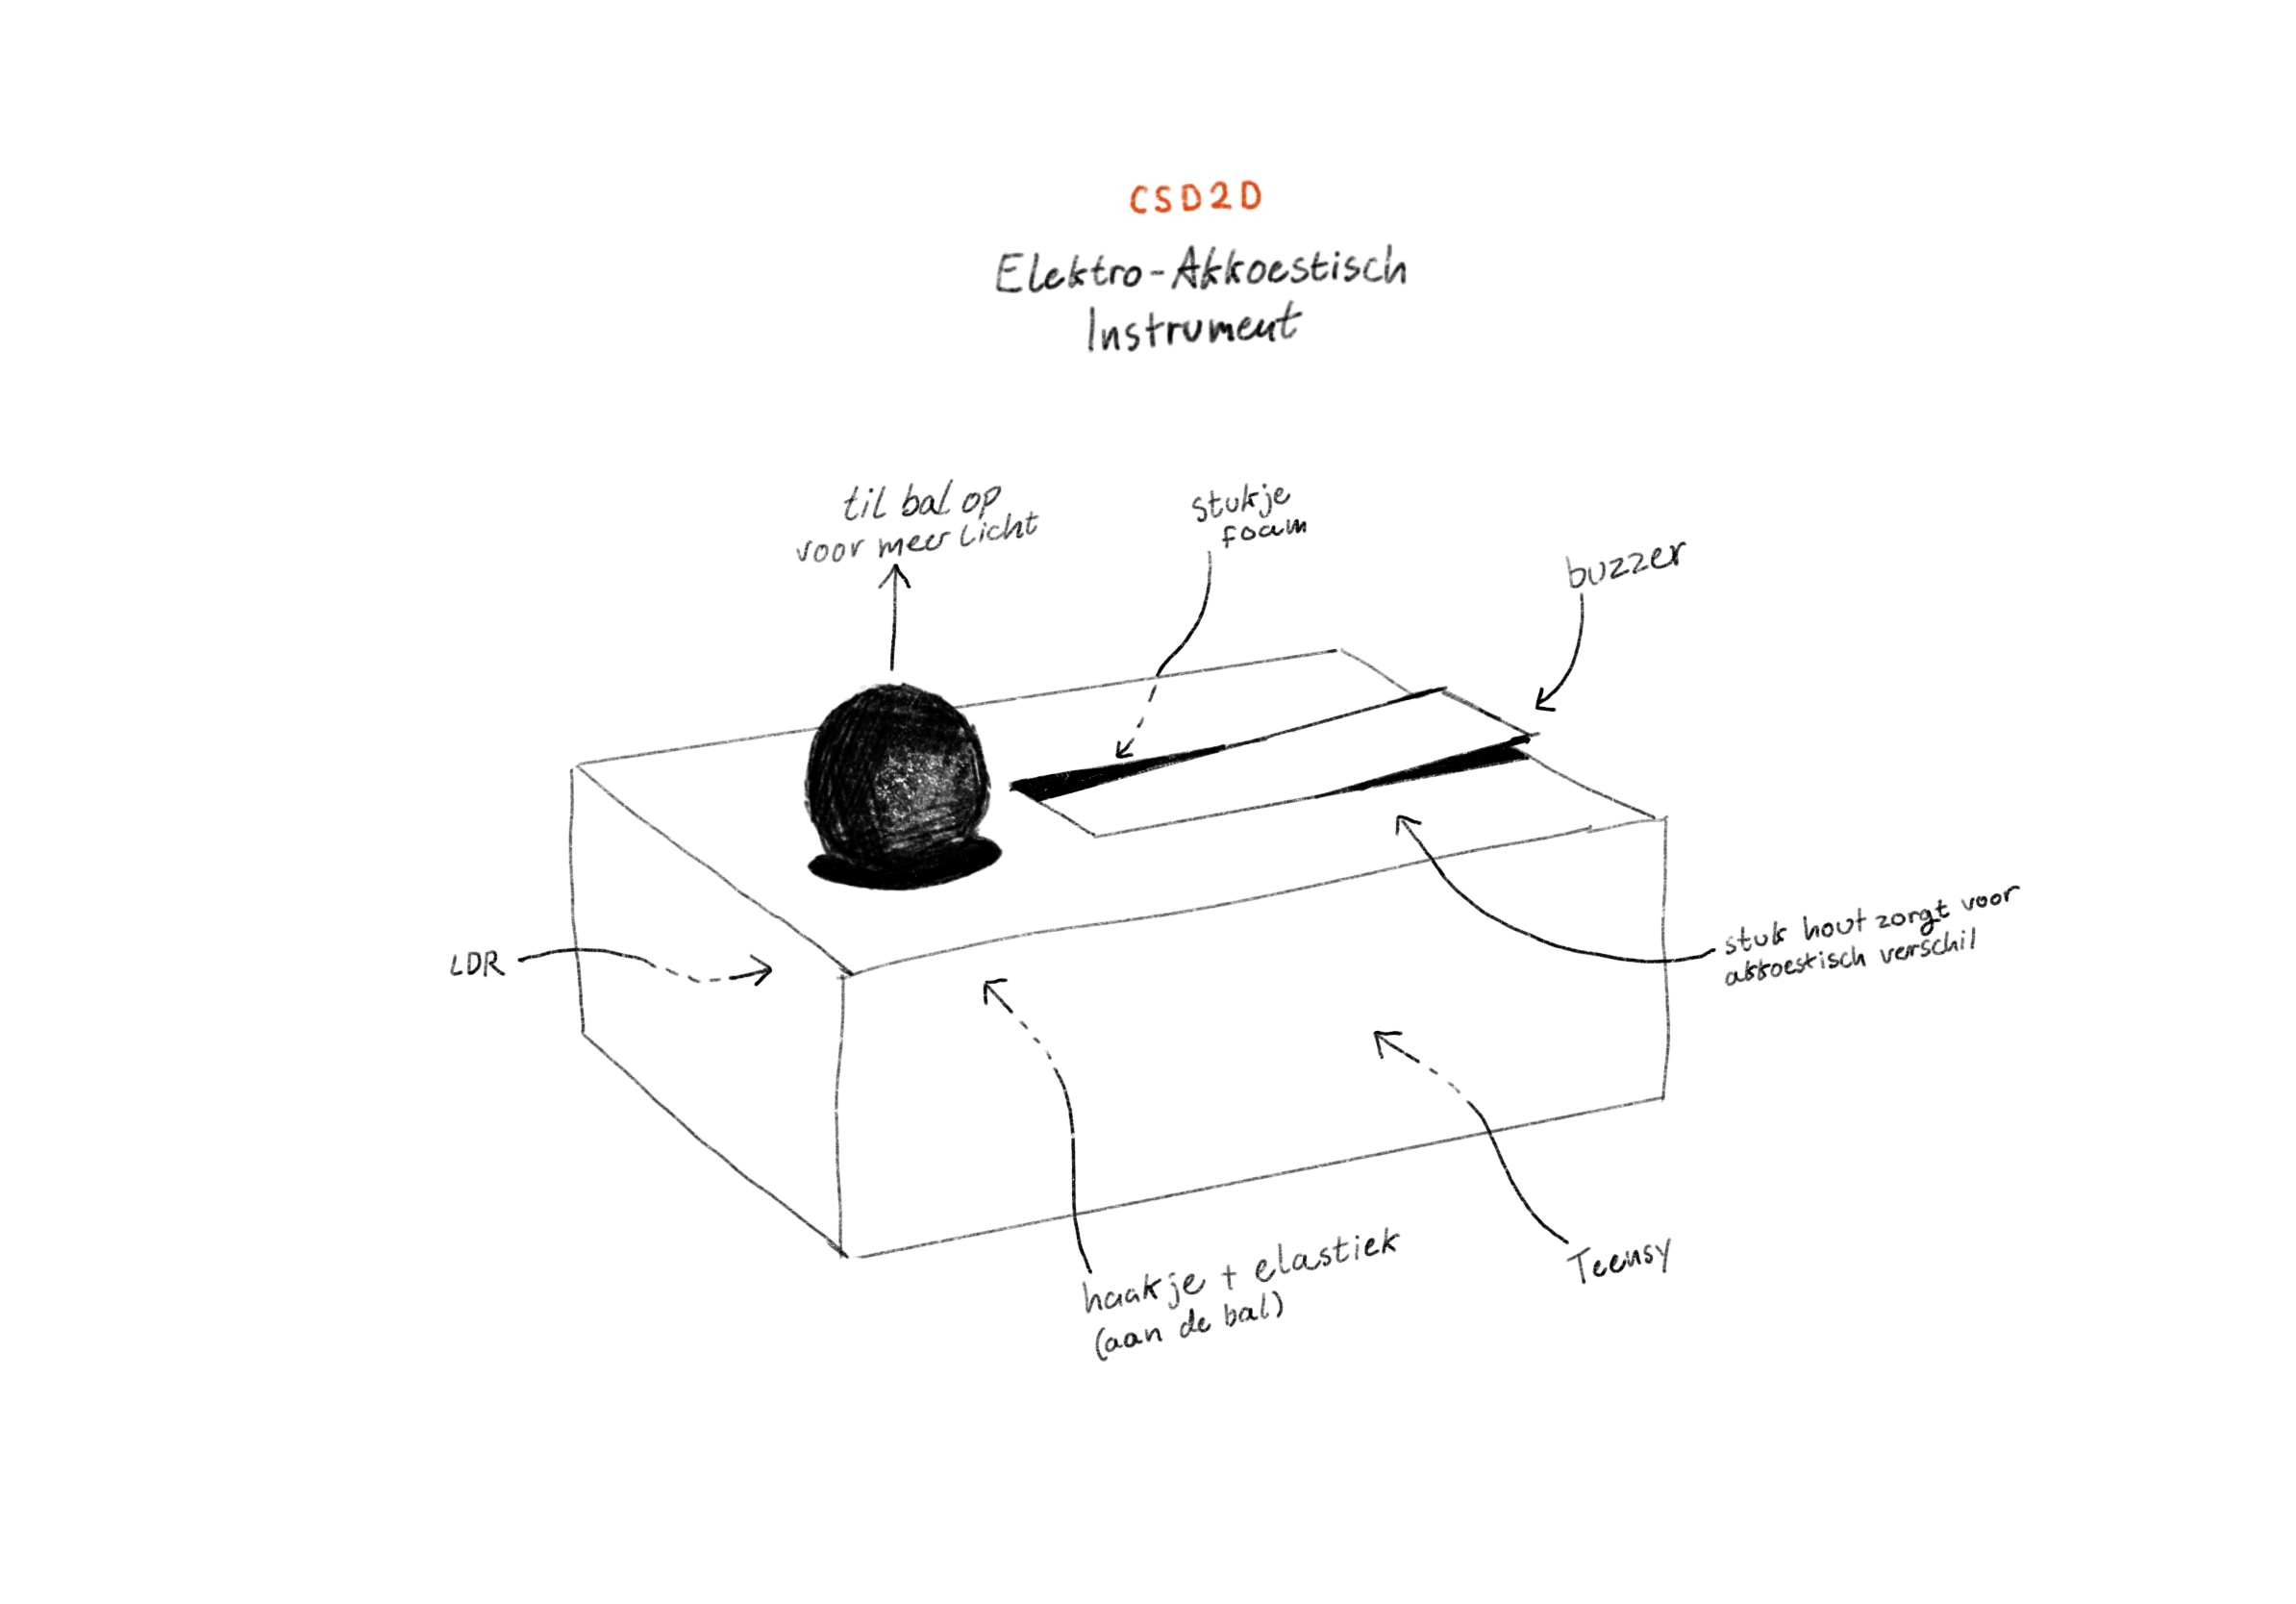 CSD2D
Elektro-Akkoestisch
Instrument
til bal op
voor meer licht
stukje
foam
buzzer
LDR
stuk hout zorgt voor
akkoestisch verschil
haakje + elastiek
(aan de bal)
Teensy